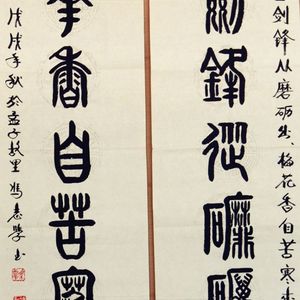 剑锋从磨砺出、梅花香自苦寒来
劍鋒從磨礪
華香自苦寒
戊戌年秋於孟子故里